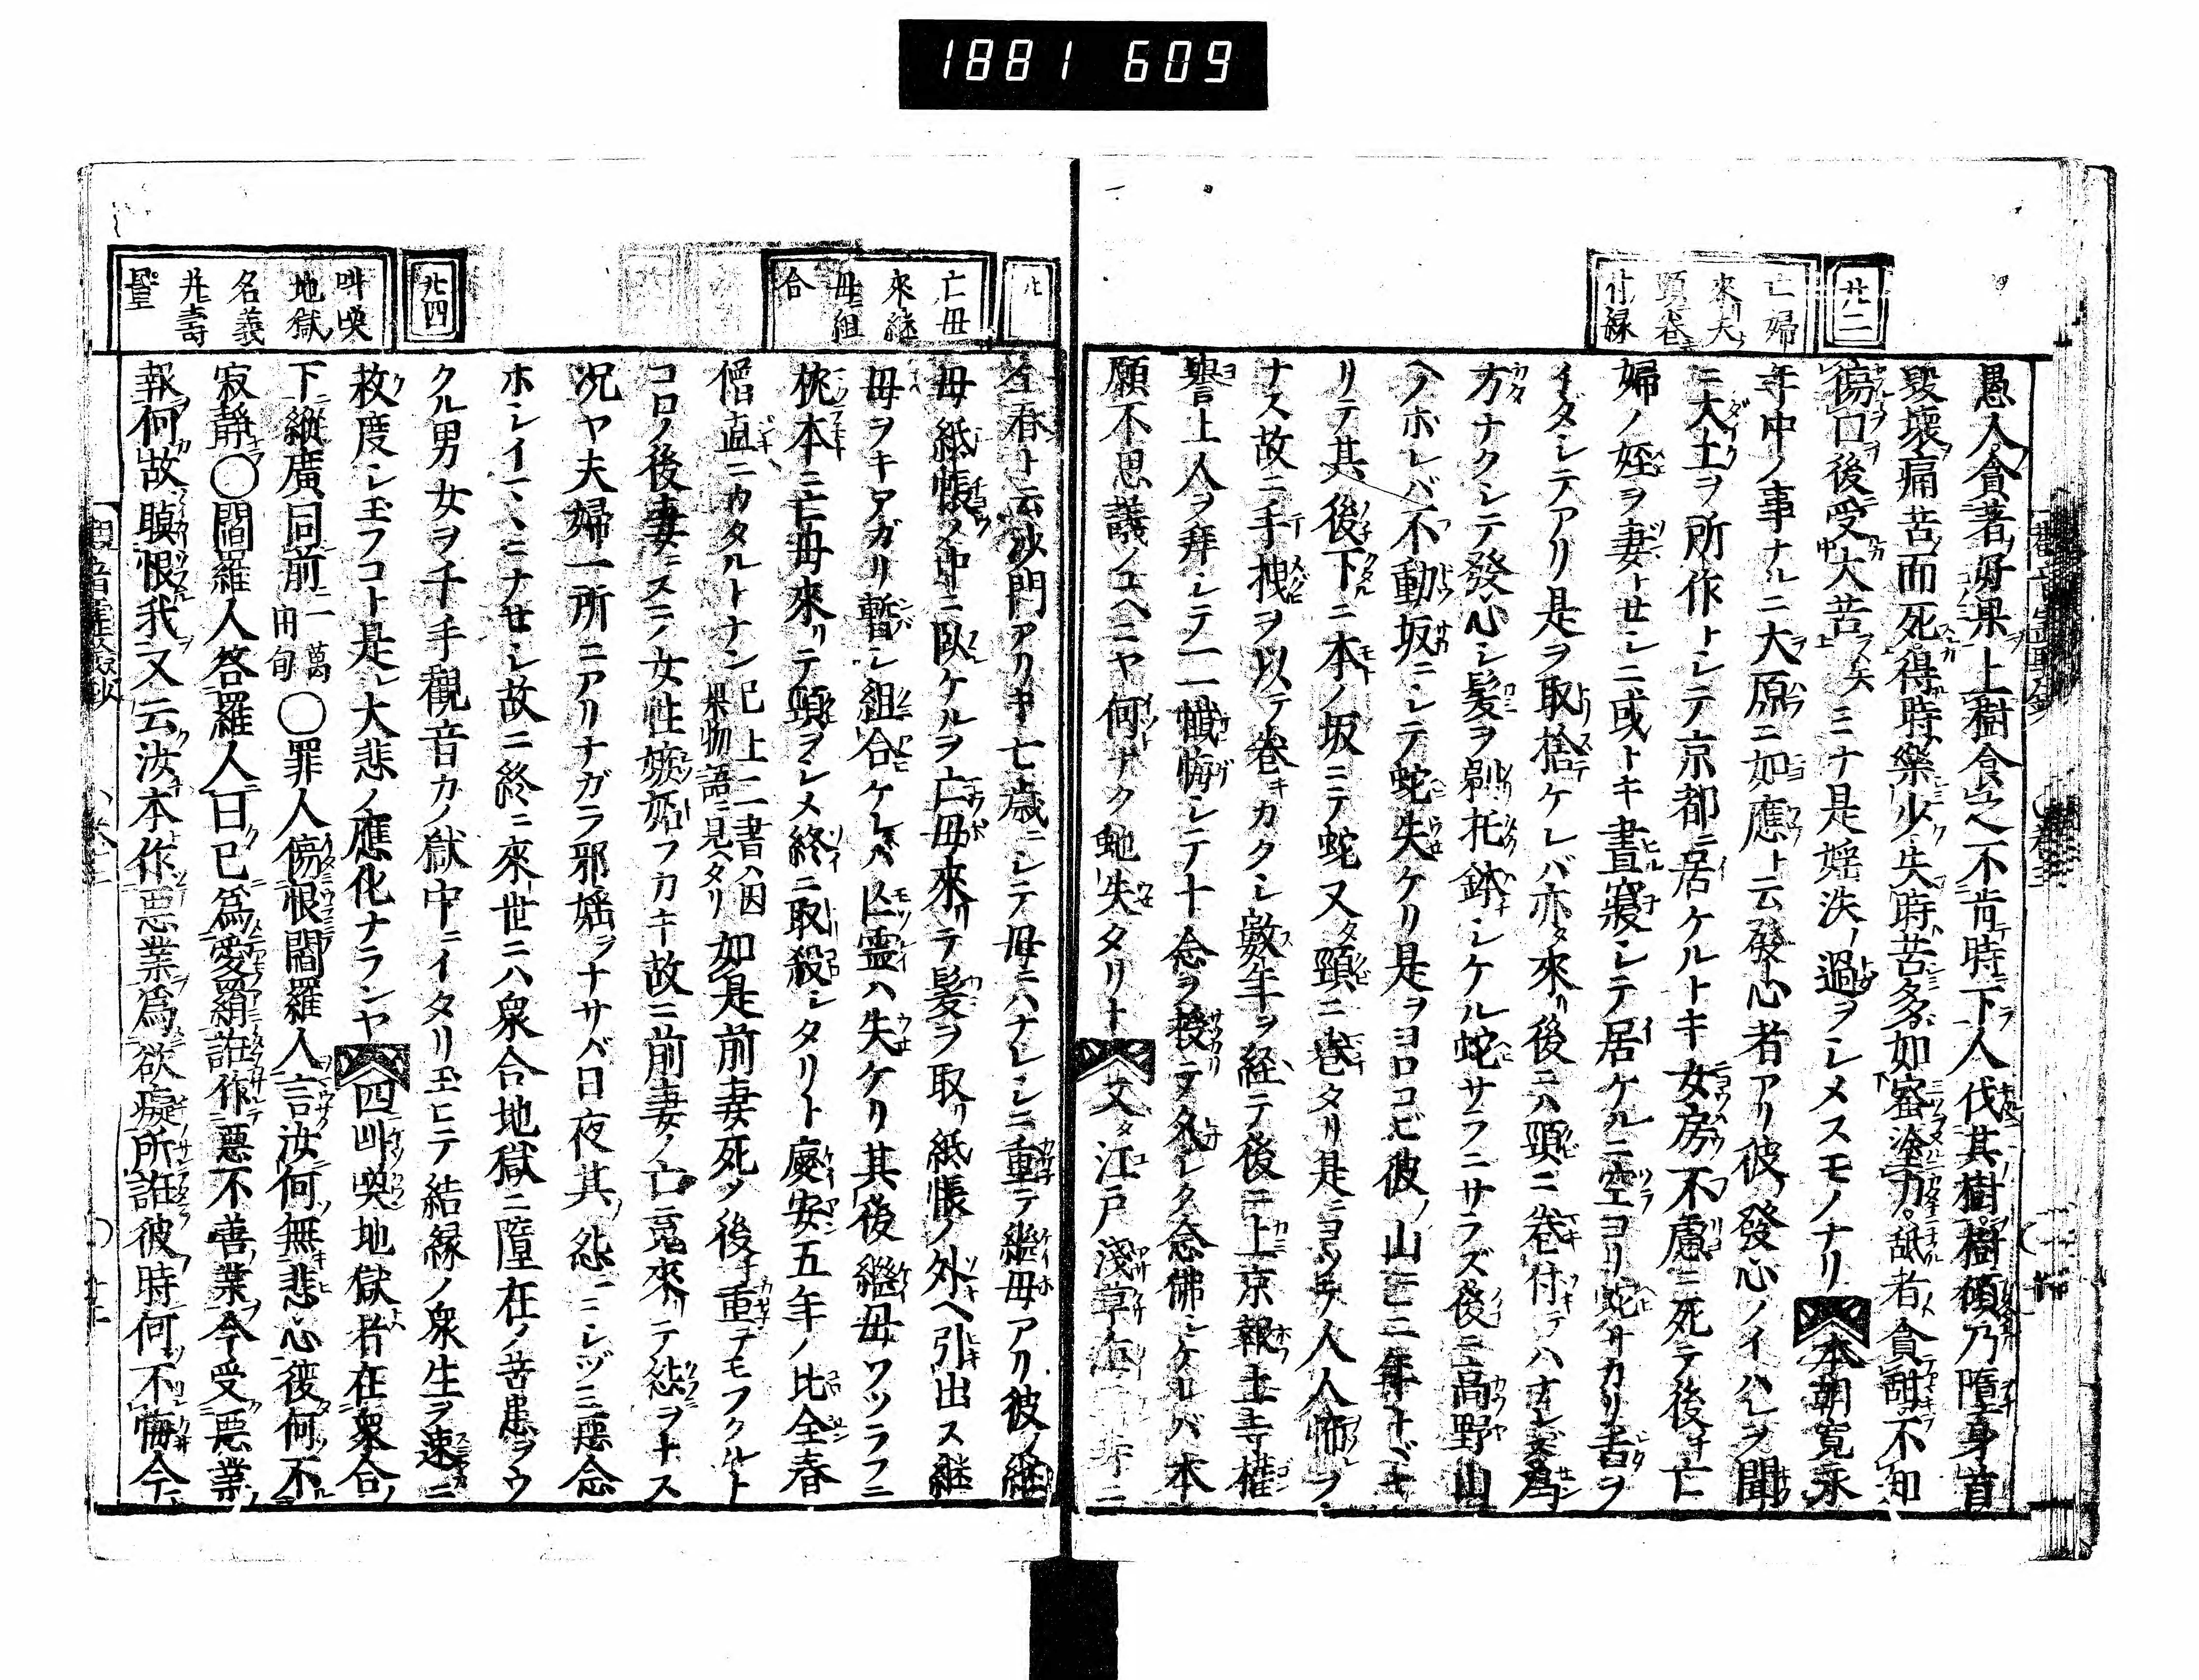 1881 609
廿二
亡婦
來夫
頸卷
付縁
愚人貪著好果上樹食之不肯時下人伐其樹樹傾乃墮身首
毀壞痛苦而死得時樂少失時苦多如蜜塗刀舐者貪甜不知
傷口後受大苦矣ミナ是婬泆ノ過ヲシメスモノナリ本朝寛永
年中ノ事ナルニ大原ニ如應ト云發心者アリ彼發心ノイハレヲ聞
ニ大土ヲ所作トシテ京都ニ居ケルトキ女房不慮ニ死テ後チ亡
婦ノ姪ヲ妻トセシニ或トキ晝寢シテ居ケルニ空ヨリ蛇サカリ舌ヲ
イダシテアリ是ヲ取捨ケレバ亦タ來リ後ニハ頸ニ卷付テハナレズ爲
方ナクシテ發心シ髪ヲ剃托鉢シケル蛇サラニサラズ後ニ高野山
ヘノホレバ不動坂ニシテ蛇失ケリ是ヲヨロコビ彼ノ山ニ二年トドキ
リテ其後下ニ本ノ坂ニテ蛇又タ頸ニ卷タリ是ニヨツテ人人怖レヲ
ナス故ニ手拽ヲ以テ卷キカクシ數年ヲ経テ後ニ上京報土寺權
譽上人ヲ拜シテ一一懺悔シテ十念ヲ授ラタレタ念佛シケレバ本
願不思議ノユヘニヤ何ナク虵失タリト又タ江戸淺草
亡毋
來継
毋組
合
全春ト云沙門アリキ七歳ニシテ母ニハナレシニ重テ継母アリ彼ノ継
母紙帳ノ中ニ臥ケルヲ亡毋來リテ髪ヲ取リ紙帳ノ外ヘ引出ス継
毋ヲキアガリ暫シ組合ケレバ亡霊ハ失ケリ其後継毋ワツラフニ
枕本ニ亡毋來リテ頸ヲシメ終ニ取殺シタリト慶安五年ノ比全春
僧直ニカタルトナン已上二書ハ因果物語ニ見ヘタリ如是前妻死タ後チ重テモフクルト
コロノ後妻ニスラノ女性嫉妬フカキ故ニ前妻ノ亡霊來リテ怨ヲナス
况ヤ夫婦一所ニアリナガラ邪婬ヲナサバ日夜其ノ怨ミニシヅミ惡念
ホシイママニナセシ故ニ終ニ來世ニハ衆合地獄ニ墮在ノ苦患ヲウ
クル男女ヲ千手觀音カノ獄中ニイタリ玉ヒテ結縁ノ衆生ヲ速ニ
救度シ玉フコト是レ大悲ノ應化ナランヤ四叫喚地獄者在衆合
下縱廣同前二萬由旬〇罪人傷恨閻羅人言汝何無悲心彼何不
寂靜〇閻羅人答羅人曰已爲愛羂誑作惡不善業今受惡業
報何故瞋恨我又云汝本作惡業爲欲癡所誑彼時何不悔今
廿四
叫喚
地獄
名義
幷壽
量